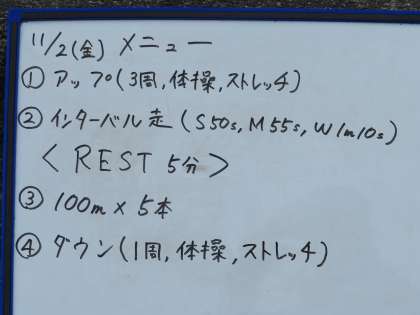 11/2(金) メニュー
① アップ(3周,体操,ストレッチ)
② インターバル走(S50s,M55s,W1m10s)
<REST 5分>
③ 100m×5本
④ ダウン(1周,体操,ストレッチ)